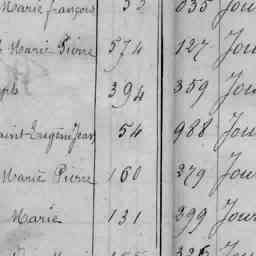 Marie françois 52 035 Jou
Marie Pierre 574 127 Jou
eph 394 359 Jou
Saint Eugene Jean 54 988 Jou
Marie Pierre 160 279 Jou
Marie 131 299 Jour
326 Jou